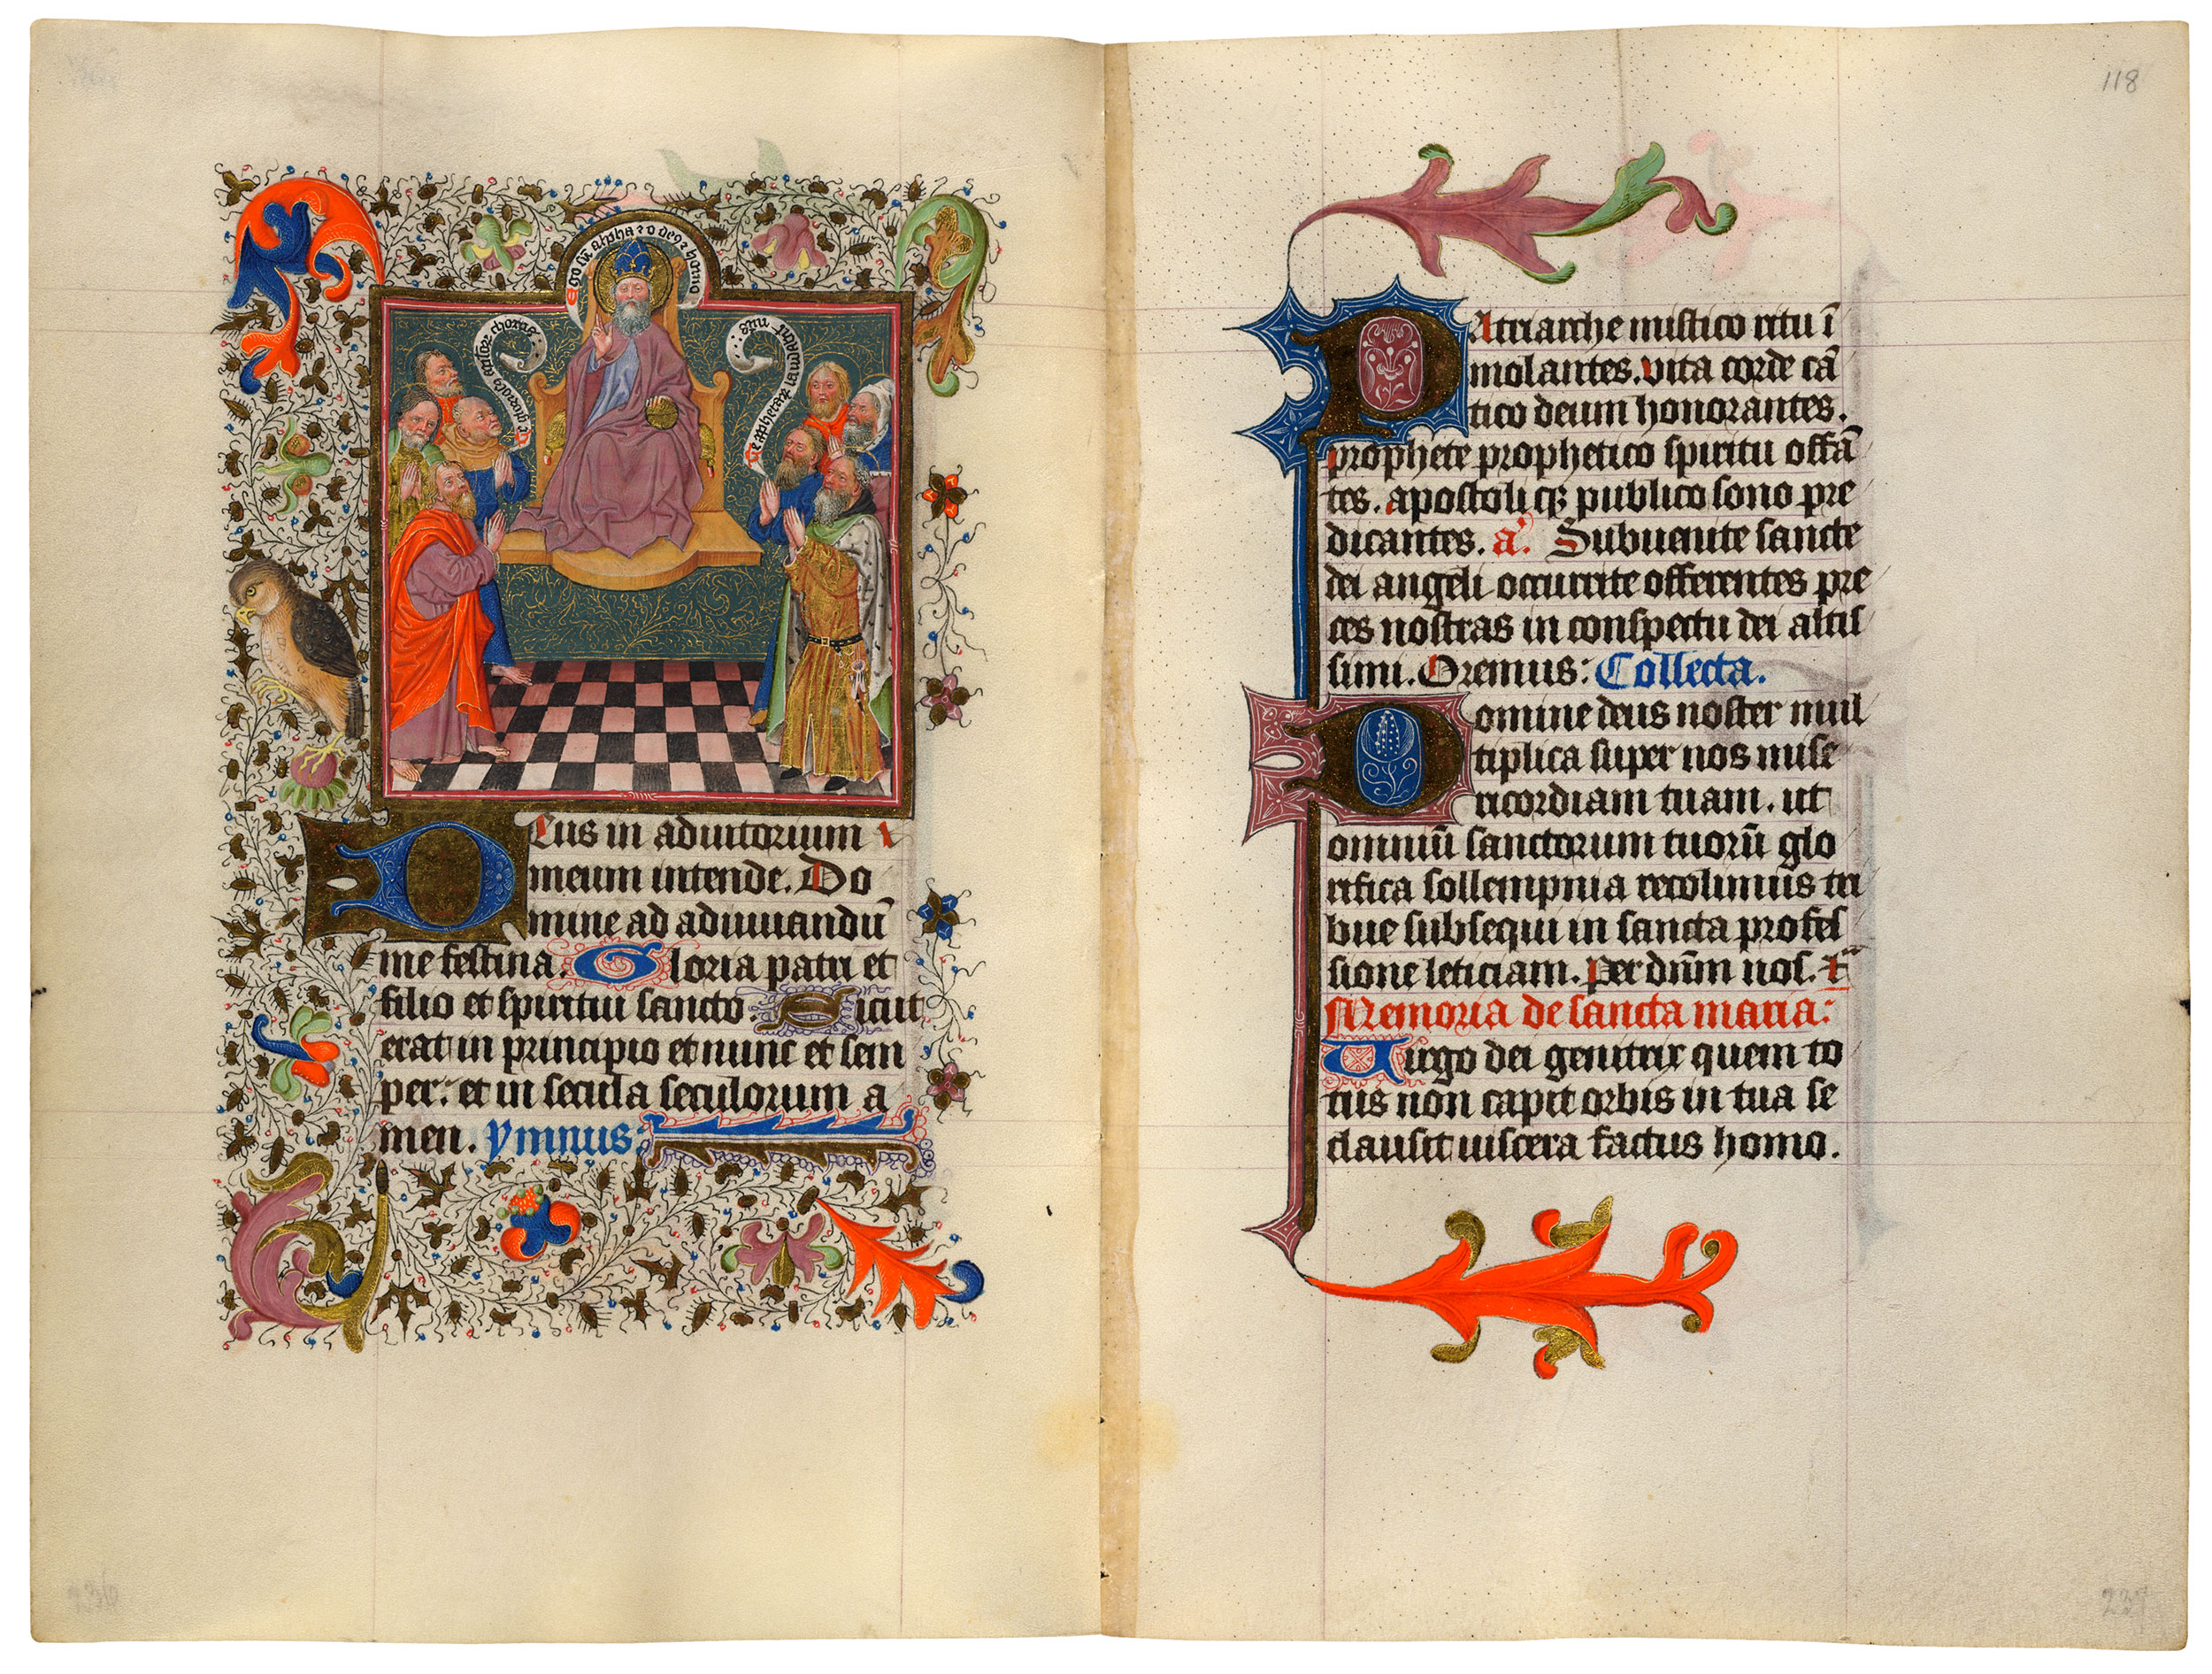 Ego sū alpha ⁊ o deꝯ ⁊ homo
Te gloriosꝯ aplor̄ chorus
Te ꝓphetarū laudabil' nūs
Deus in adiutorium
meum intende. Do
mine ad adiuuandū
me festina. Gloria patri et
filio et spiritui sancto. Sicut
erat in principio et nunc et sem
per: et in secula seculorum a
men. ymnus:
236
118
Patriarche mistico ritu ī
molantes. vita corde cā
tico deum honorantes.
prophete prophetico spiritu offā
tes. apostoli qꝫ publico sono pre
dicantes. a'. Subuenite sancte
dei angeli occurrite offerentes pre
ces nostras in conspectu dei altis
simi. Oremus: Collecta.
Domine deus noster mul
tiplica super nos mise
ricordiam tuam. ut
omniū sanctorum tuorū glo
rifica sollempnia recolimus tri
bue subsequi in sancta profes
sione leticiam. Per dnm̄ nos.
Memoria de sancta maria:
Uirgo dei genitrix quem to
tus non capit orbis in tua se
clausit uiscera factus homo.
237